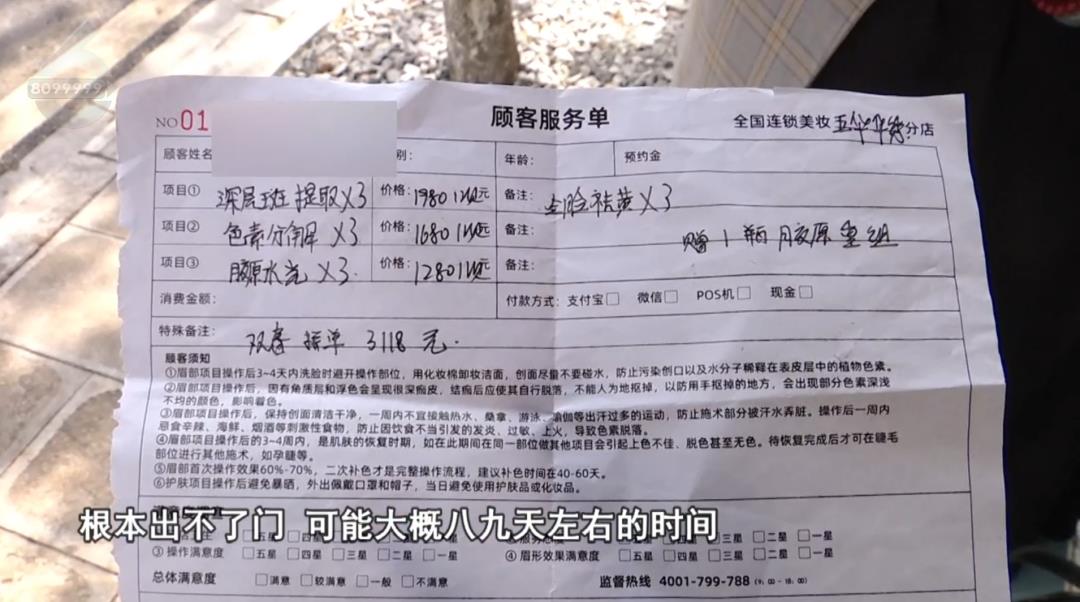 8099999
NO 01
顾客服务单
全国连锁美妆五华华秀分店
顾客姓名 别: 年龄: 预约金
项目① 深层斑提取X3 价格:1980 1次元 备注: 全脸祛黄X3
项目② 色素分解 X3 价格:1680 1次元 备注: 赠1瓶胶原重组
项目③ 胶原水光 X3. 价格:1280 1次元 备注:
消费金额: 付款方式: 支付宝□ 微信□ POS机□ 现金□
特殊备注: 3118 元.
顾客须知
①眉部项目操作后3~4天内洗脸时避开操作部位,用化妆棉卸妆洁面,创面尽量不要碰水,防止污染创口以及水分子稀释在表皮层中的植物色素。
②眉部项目操作后,因有角质层和浮色会呈现很深痂皮,结痂后应使其自行脱落,不能人为地抠掉,以防用手抠掉的地方,会出现部分色素深浅
不均的颜色,影响着色。
③眉部项目操作后,保持创面清洁干净,一周内不宜接触热水、桑拿、游泳、瑜伽等出汗过多的运动,防止施术部分被汗水弄脏。操作后一周内
忌食辛辣、海鲜、烟酒等刺激性食物,防止因饮食不当引发的发炎、过敏、上火,导致色素脱落。
④眉部项目操作后的3~4周内,是肌肤的恢复时期,如在此期间在同一部位做其他项目会引起上色不佳、脱色甚至无色。待恢复完成后才可在睫毛
部位进行其他施术,如孕睫等。
⑤眉部首次操作效果60%-70%,二次补色才是完整操作流程,建议补色时间在40-60天。
⑥护肤项目操作后避免暴晒,外出佩戴口罩和帽子,当日避免使用护肤品或化妆品。
根本出不了门 可能大概八九天左右的时间
③ 操作满意度 □五星 □四星 □三星 □二星 □一星 ④ 眉形效果满意度 □五星 □四星 □三星 □二星 □一星
总体满意度 □满意 □较满意 □一般 □不满意 监督热线 4001-799-788 (9:00-18:00)